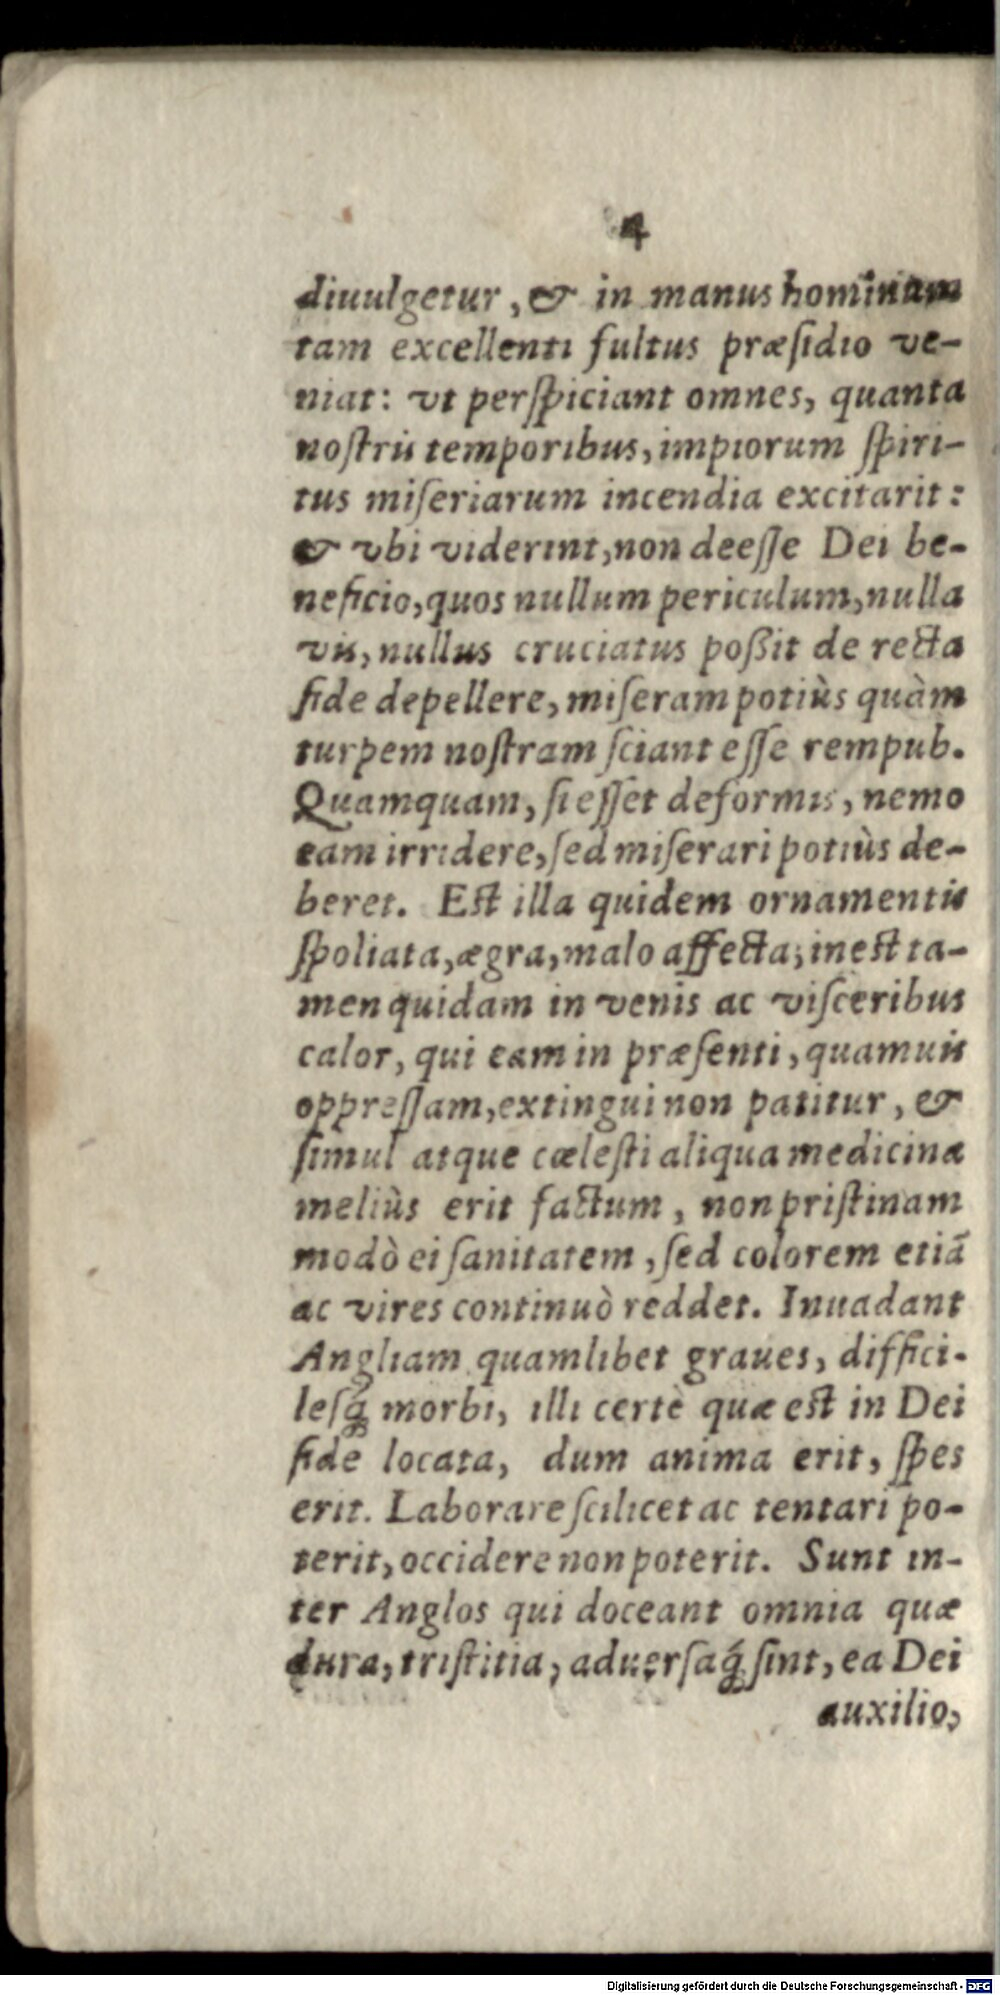 4
diuulgetur, & in manus hominum
tam excellenti fultus præſidio ve-
niat: vt perſpiciant omnes, quanta
noſtris temporibus, impiorum ſpiri-
tus miſeriarum incendia excitarit:
& vbi viderint, non deeſſe Dei be-
neficio, quos nullum periculum, nulla
vis, nullus cruciatus poßit de recta
fide depellere, miſeram potiùs quàm
turpem noſtram ſciant eſſe rempub.
Quamquam, ſi eſſet deformis, nemo
eam irridere, ſed miſerari potiùs de-
beret. Eſt illa quidem ornamentis
ſpoliata, ægra, malo affecta; ineſt ta-
men quidam in venis ac viſceribus
calor, qui eam in præſenti, quamuis
oppreſſam, extingui non patitur, &
ſimul atque cæleſti aliqua medicina
meliùs erit factum, non priſtinam
modò ei ſanitatem, ſed colorem etiã
ac vires continuò reddet. Inuadant
Angliam quamlibet graues, diffici-
leſq́; morbi, illi certè quæ eſt in Dei
fide locata, dum anima erit, ſpes
erit. Laborare ſcilicet ac tentari po-
terit, occidere non poterit. Sunt in-
ter Anglos qui doceant omnia quæ
dura, triſtitia, aduerſaq́; ſint, ea Dei
auxilio,
Digitalisierung gefördert durch die Deutsche Forschungsgemeinschaft - DFG